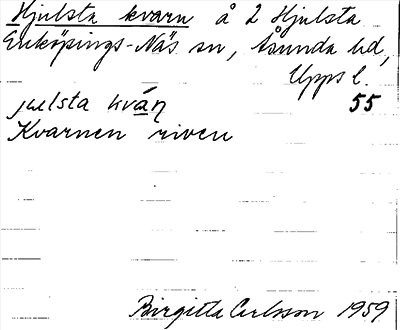 Hjulsta kvarn å 2 Hjulsta
Enköpings-Näs sn, Åsunda hd,
Upps l.
julsta kván 55
Kvarnen riven
Birgitta Carlsson 1959